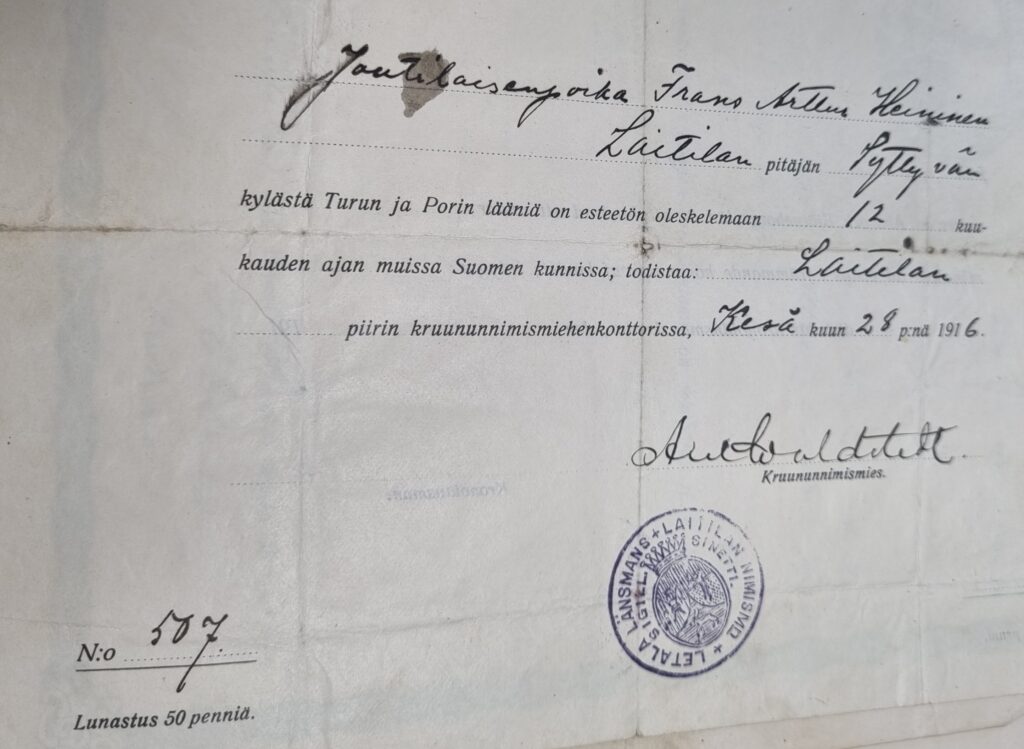 Joutilaisenpoika Frans Arttur Heininen
Laitilan pitäjän Sytty vän
kylästä Turun ja Porin lääniä on esteetön oleskelemaan 12 kuu-
kauden ajan muissa Suomen kunnissa; todistaa: Laitilan
piirin kruununnimismiehenkonttorissa, Kesä kuun 28 p:nä 1916.
Kruununnimismies.
+ LAITILAN NIMISMD + LETALA LÄNSMANS
SINETTI. SIGILL.
N:o 507.
Lunastus 50 penniä.
Kronolänsman.